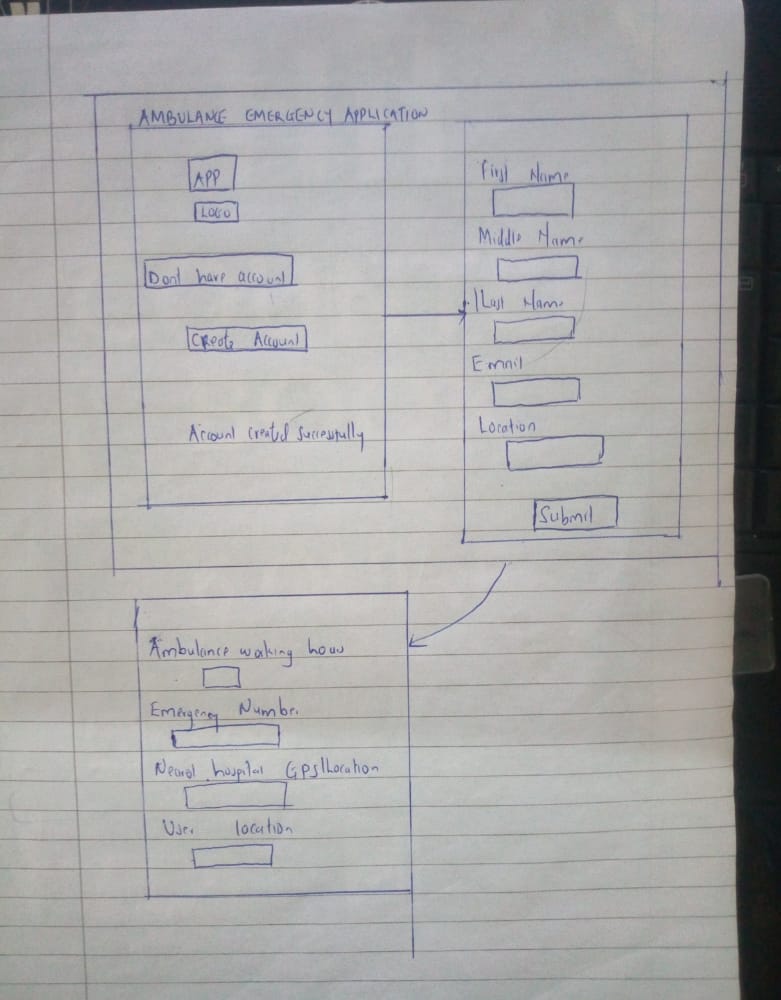 AMBULANCE EMERGENCY APPLICATION
APP
LOGO
Dont have account
Create Account
Account created successfully
First Name
Middle Name
Last Name
Email
Location
Submit
Ambulance working hour
Emergency Number
Nearest hospital GPS/Location
User location